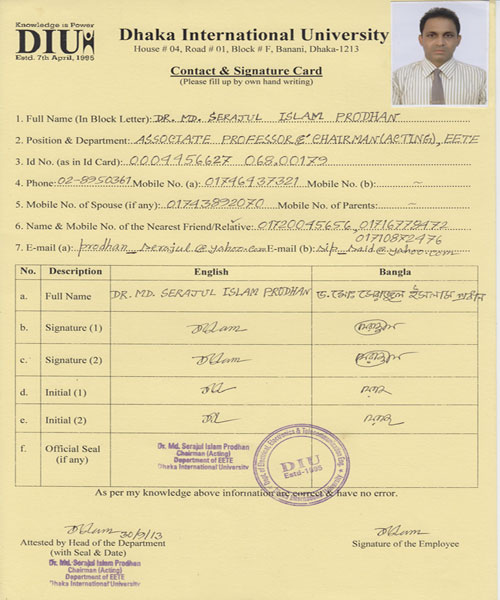 Knowledge is Power
DIU
Estd. 7th April, 1995
Dhaka International University
House # 04, Road # 01, Block # F, Banani, Dhaka-1213
Contact & Signature Card
(Please fill up by own hand writing)
1. Full Name (In Block Letter): DR. MD. SERAJUL ISLAM PRODHAN
2. Position & Department: ASSOCIATE PROFESSOR & CHAIRMAN(ACTING), EETE
3. Id No. (as in Id Card): 0004456627 068.00179
4. Phone: 02-8950361 Mobile No. (a): 01746437321 Mobile No. (b): ~
5. Mobile No. of Spouse (if any): 01743892070 Mobile No. of Parents: ~
6. Name & Mobile No. of the Nearest Friend/Relative: 01720045656, 01716778472
01710872476
7. E-mail (a): prodhan_serajul@yahoo.com E-mail (b): sip_said@yahoo.com
No. Description English Bangla
a. Full Name DR. MD. SERAJUL ISLAM PRODHAN
b. Signature (1)
c. Signature (2)
d. Initial (1)
e. Initial (2)
f. Official Seal
(if any)
Dr. Md. Serajul Islam Prodhan
Chairman (Acting)
Department of EETE
Dhaka International University
DIU
Estd-1995
As per my knowledge above information are correct & have no error.
30/9/13
Attested by Head of the Department
(with Seal & Date)
Signature of the Employee
Dr. Md. Serajul Islam Prodhan
Chairman (Acting)
Department of EETE
Dhaka International University